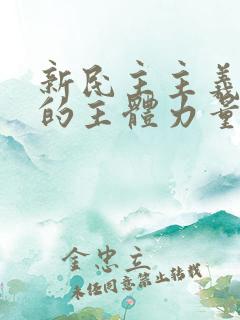 新民主主義
的主體力量
金忠立
未经同意禁止转载